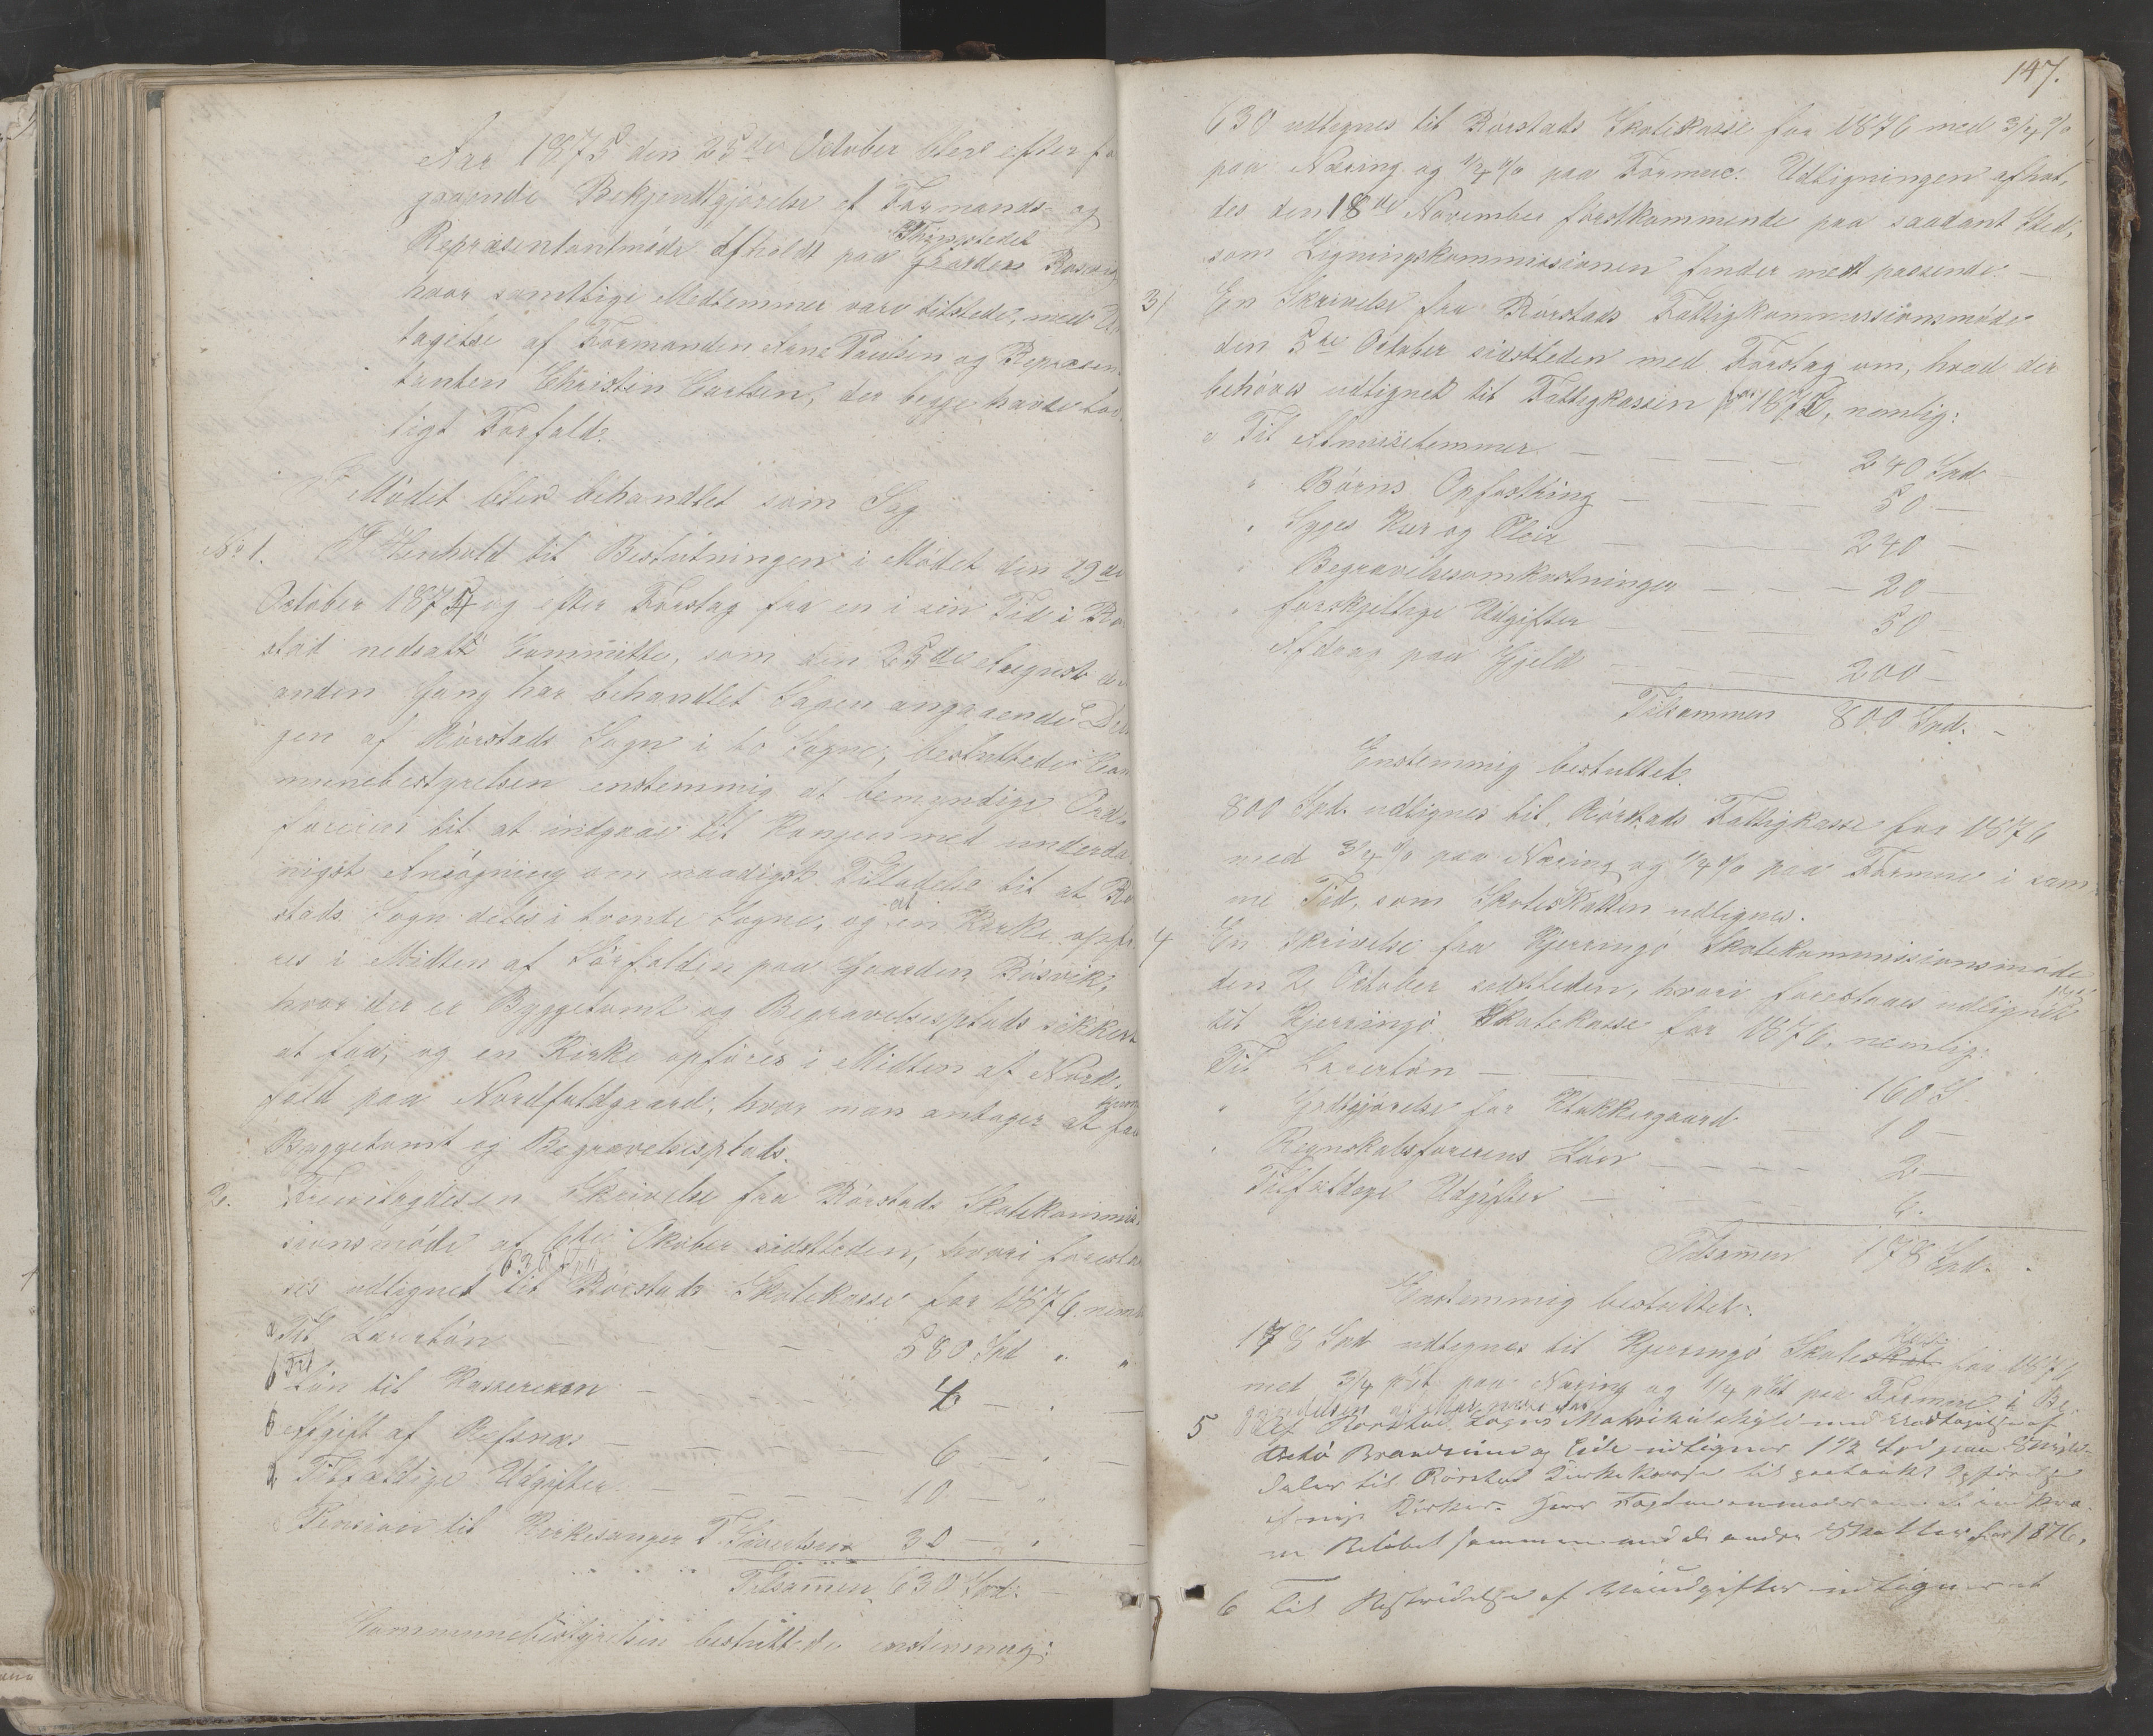 Aar 1875 den 25de October blev efter fo
gaaende Bekjendtgjørelse et Formands- og
Repræsentantmøde afholdt paa Thingstedet Røsvig
hvor samtlige Medlemmer vare tilstede, med Un
tagelse af Formanden Arne Paulsen og Repræsen-
tanten Christin Carlsen, der begge havde lov
ligt Forfald.
I Mødet blev behandlet som Sag
No 1. I Henhold til Beslutningen i Mødet den 29de
October 1874 og efter Forslag fra en i sin Tid i Rør
stad nedsatte Committe, som den 25de August den
anden Gang har behandlet Sagen angaaende Delin
gen af Rørstads Sogn i to Sogne, besluttede Com
munebestyrelsen enstemmig at bemyndige Ord-
føreren til at indgaae til Kongen med underda
nigst Ansøgning om naadigst Tilladelse til at Rør
stads Sogn deles i tvende Sogne, og at en Kirke opfø
res i Midten af Sørfolden paa Gaarden Røsvik,
hvor der er Byggetomt og Begravelsesplads sikkert
at faa, og en Kirke opføres i Midten af Nord-
fold paa Nordfoldgaard, hvor man antager at faa
Byggetomt og Begravelsesplads.
2. Fremlagdes en Skrivelse fra Rørstads Skolekommis
sionsmøde af 6te Oktober sidstleden, hvori foreslaa
es udlignet 630 Spd til Rørstads Skolekasse for 1876. nemlig
a Til Lærerløn 580 Spd " "
b Løn til Kassereren 4 —
c Afgift af Refsnæs 6 —
d Tilfældige Udgifter 10 —
Pension til Kirkesanger T. Sivertsen 30 —
Tilsammen 630 Spd.
Kommunebestyrelsen besluttede enstemmig:
147.
630 udlignes til Rørstads Skolekasse for 1876 med 3/4 %
paa Næring og 1/4 % paa Formue. Udligningen afhol-
des den 18de November førstkommende paa saadant Sted,
som Ligningskommissionen finder mest passende. —
3) En Skrivelse fra Rørstads Fattigkommissionsmøde
den 5te October sidstleden med Forslag om, hvad der
behøves udlignet til Fattigkassen for 1876, nemlig:
" Til Almisselemmer 240 Spd
" Børns Opfostring 50 —
" Syges Kur og Pleie 240 —
" Begravelsesomkostninger 20 —
" forskjellige Udgifter 50 —
Afdrag paa Gjeld 200 —
Tilsammen 800 Spd. —
Enstemmig besluttet.
800 Spd. udlignes til Rørstads Fattigkasse for 1876
med 3/4 % paa Næring og 1/4 % paa Formue i sam-
me Tid, som Skoleskatten udlignes.
4 En Skrivelse fra Kjerringø Skolekommissionsmøde
den 2 October sidstleden, hvori foreslaaes udlignet
til Kjerringø Skolekasse for 1876. nemlig:
Til Lærerløn 160 S.
" Godtgjørelse for Klokkergaard 10 —
" Regnskabsførerens Løn 2 —
Tilfældige Udgifter 6.
Tilsammen 178 Spd. .
Enstemmig besluttet.
178 Spd udlignes til Kjerringø Skolekasse for 1876
med 3/4 pCt paa Næring og 1/4 pCt paa Formue i Be
5 Af Rørstad Sogns Matrikulskyld med Undtagelse af
Brandsund og Eide udlignes 1 1/2 Spd paa Skyld-
daler til Rørstad Kirkekasse til paatænkt Opførelse
af nye Kirker. Herr Fogden anmodes om at indkræ-
ve Beløbet sammen med de andre Skatter for 1876.
6 Til Bestridelse af udgifter udlignes et